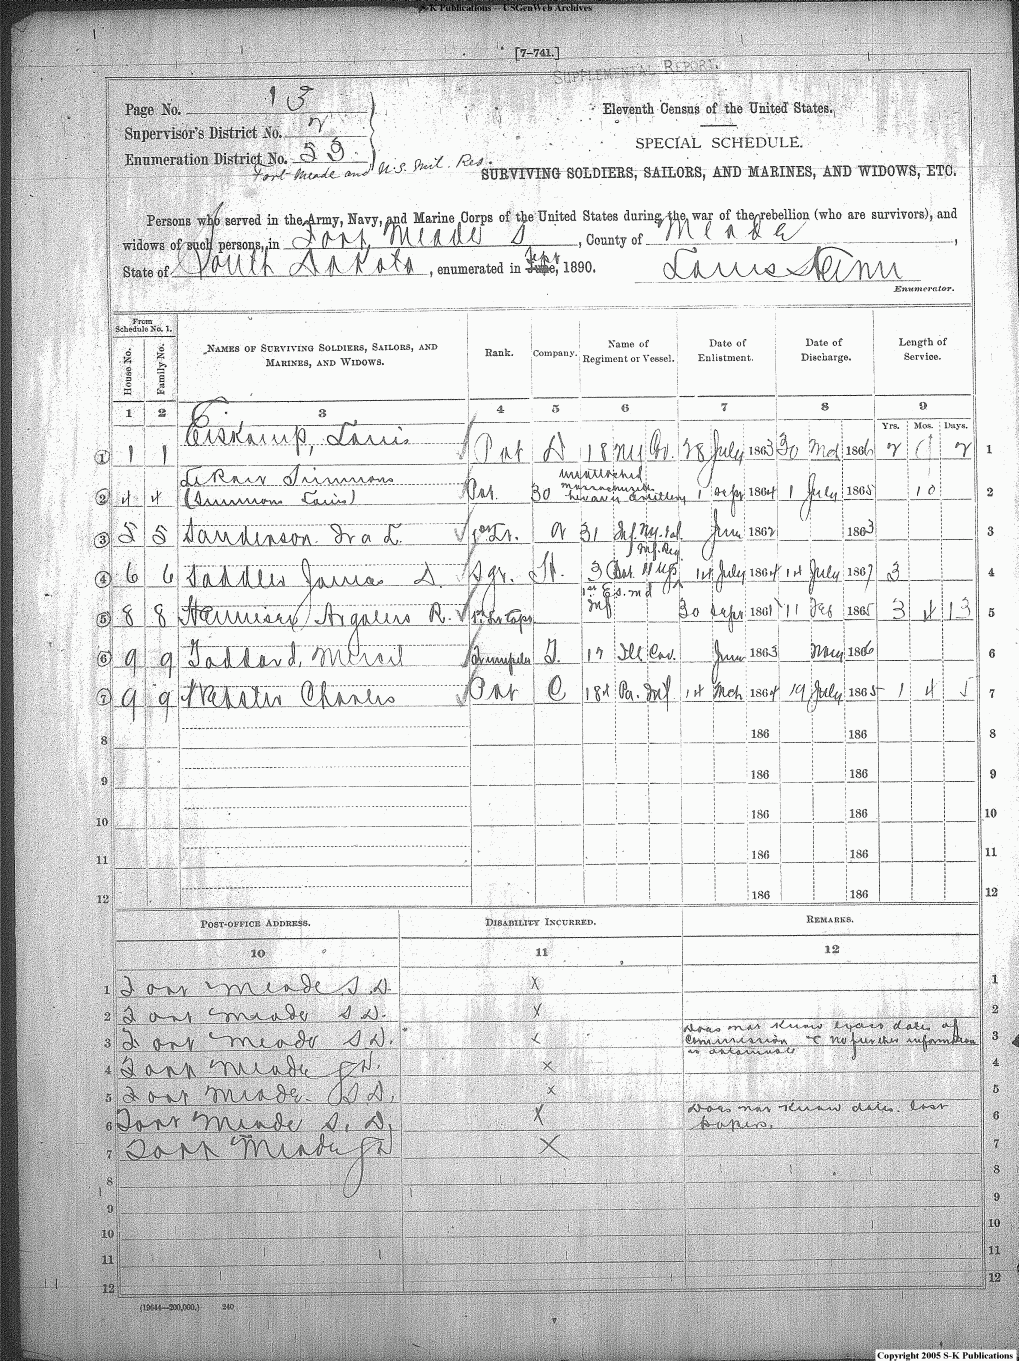 S-K Publications – USGenWeb Archives
[7–741.]
SUPPLEMENTAL REPORT.
Page No. 13
Supervisor's District No. 2
Enumeration District No. 53
Fort Meade and U.S. Mil. Res.
Eleventh Census of the United States.
SPECIAL SCHEDULE.
SURVIVING SOLDIERS, SAILORS, AND MARINES, AND WIDOWS, ETC.
Persons who served in the Army, Navy, and Marine Corps of the United States during the war of the rebellion (who are survivors), and
widows of such persons, in Fort Meade S, County of Meade,
State of South Dakota, enumerated in June, 1890.
Enumerator.
From Schedule No. 1.
House No. Family No. NAMES OF SURVIVING SOLDIERS, SAILORS, AND MARINES, AND WIDOWS. Rank. Company. Name of Regiment or Vessel. Date of Enlistment. Date of Discharge. Length of Service.
1 2 3 4 5 6 7 8 9
Yrs. Mos. Days.
1 1 1 Eiskamp, Louis 28 July 1863 30 1866 2 2 1
2 4 4 (Simmons Louis) 1 1864 1 July 1865 10 2
3 5 5 Sanderson Ira L. 31 1862 1863 3
4 6 6 Saddler James S. Sgt. H. 1st July 1864 1st July 1867 3 4
5 8 8 R. Inf 30 Sept 1861 11 Feb 1865 3 4 13 5
6 9 9 Goddard, 17 Ill Cav. June 1863 1866 6
7 9 9 Webster Charles C Pa. Inf 1st Mch 1864 19 July 1865 1 4 5 7
8 186 186 8
9 186 186 9
10 186 186 10
11 186 186 11
12 186 186 12
POST-OFFICE ADDRESS. DISABILITY INCURRED. REMARKS.
10 11 12
1 Fort Meade S.D. X 1
2 Fort Meade S.D. X 2
3 Fort Meade S.D. X Does not know exact dates of commission & no further information is obtainable 3
4 Fort Meade S.D. X 4
5 Fort Meade S.D. X 5
6 Fort Meade S.D. X Does not know dates. lost papers. 6
7 Fort Meade SD X 7
8 8
9 9
10 10
11 11
12 12
(19644—200,000.) 240
Copyright 2005 S-K Publications